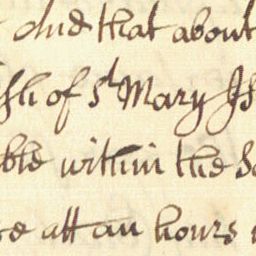 and that about
sh of St Mary Is
ble within the Sa
re att an hours